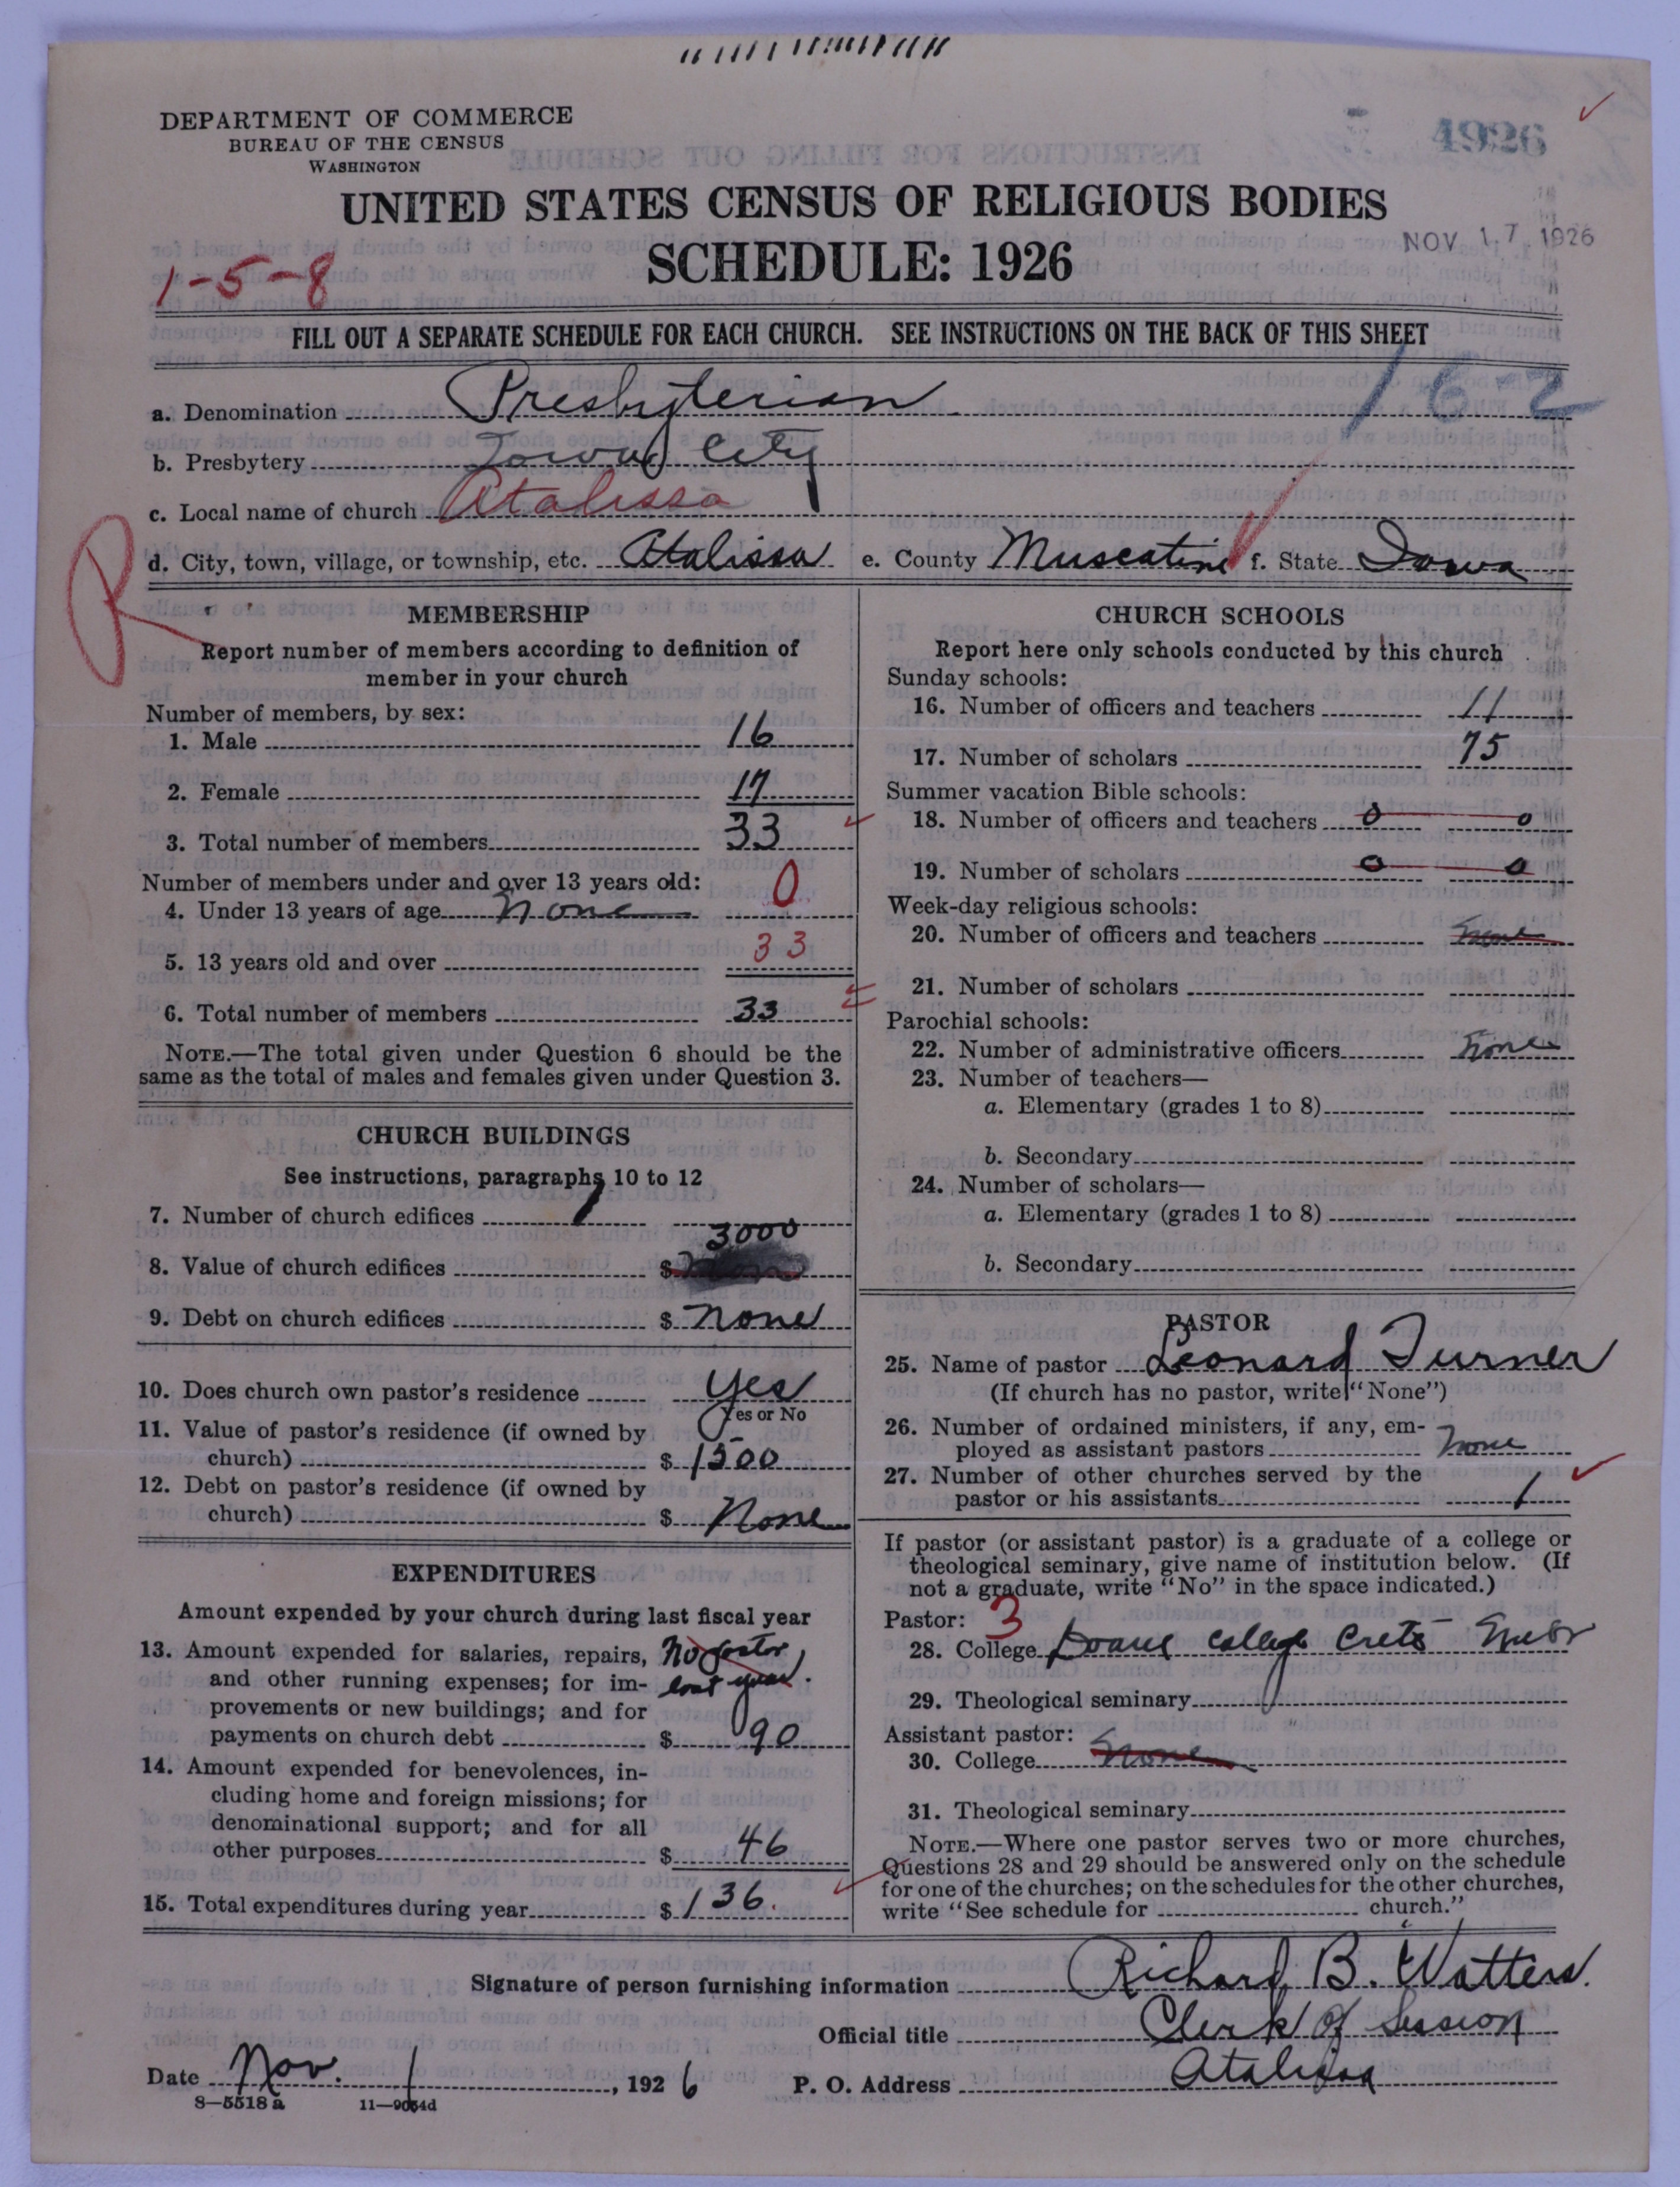 DEPARTMENT OF COMMERCE
BUREAU OF THE CENSUS
WASHINGTON
1926
UNITED STATES CENSUS OF RELIGIOUS BODIES
SCHEDULE: 1926
NOV 17 1926
1-5-8
FILL OUT A SEPARATE SCHEDULE FOR EACH CHURCH. SEE INSTRUCTIONS ON THE BACK OF THIS SHEET
162
a. Denomination Presbyterian
b. Presbytery Iowa City
c. Local name of church Atalissa
d. City, town, village, or township, etc. Atalissa e. County Muscatine f. State Iowa
R
MEMBERSHIP
Report number of members according to definition of
member in your church
Number of members, by sex:
1. Male 16
2. Female 17
3. Total number of members 33
Number of members under and over 13 years old:
4. Under 13 years of age none 0
5. 13 years old and over 33
6. Total number of members 33
NOTE.—The total given under Question 6 should be the
same as the total of males and females given under Question 3.
CHURCH BUILDINGS
See instructions, paragraphs 10 to 12
7. Number of church edifices 1
8. Value of church edifices $ 3000
9. Debt on church edifices $ none
10. Does church own pastor's residence Yes
Yes or No
11. Value of pastor's residence (if owned by
church) $ 1500
12. Debt on pastor's residence (if owned by
church) $ None
EXPENDITURES
Amount expended by your church during last fiscal year
13. Amount expended for salaries, repairs, No pastor
and other running expenses; for im- last year.
provements or new buildings; and for
payments on church debt $ 90
14. Amount expended for benevolences, in-
cluding home and foreign missions; for
denominational support; and for all
other purposes $ 46
15. Total expenditures during year $ 136.
CHURCH SCHOOLS
Report here only schools conducted by this church
Sunday schools:
16. Number of officers and teachers 11
17. Number of scholars 75
Summer vacation Bible schools:
18. Number of officers and teachers 0 0
19. Number of scholars 0 0
Week-day religious schools:
20. Number of officers and teachers None
21. Number of scholars
Parochial schools:
22. Number of administrative officers None
23. Number of teachers—
a. Elementary (grades 1 to 8)
b. Secondary
24. Number of scholars—
a. Elementary (grades 1 to 8)
b. Secondary
PASTOR
25. Name of pastor Leonard Turner
(If church has no pastor, write "None")
26. Number of ordained ministers, if any, em-
ployed as assistant pastors None
27. Number of other churches served by the
pastor or his assistants 1
If pastor (or assistant pastor) is a graduate of a college or
theological seminary, give name of institution below. (If
not a graduate, write "No" in the space indicated.)
Pastor: 3
28. College Doane College Crete Nebr
29. Theological seminary
Assistant pastor:
30. College None
31. Theological seminary
NOTE.—Where one pastor serves two or more churches,
Questions 28 and 29 should be answered only on the schedule
for one of the churches; on the schedules for the other churches,
write "See schedule for church."
Signature of person furnishing information Richard B. Watters.
Official title Clerk of Session
Date Nov. 1, 1926 P. O. Address Atalissa
8—5518 a 11—9054d